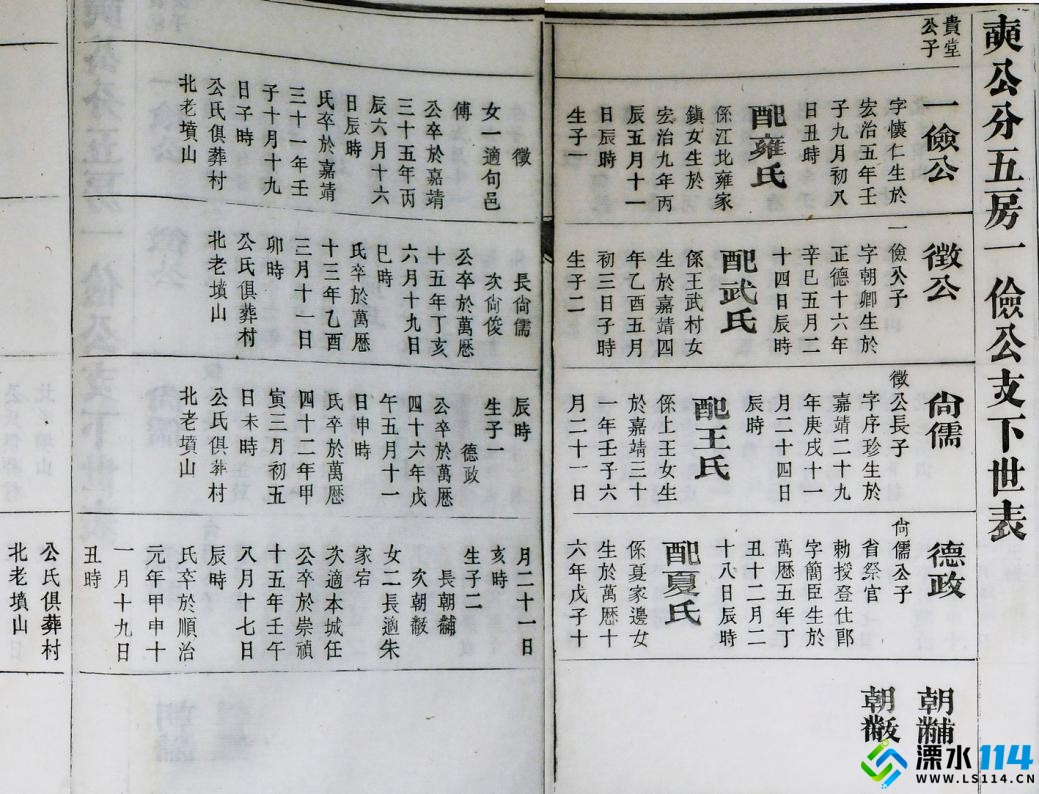 奭公分五房一儉公支下世表
貴堂
公子
一儉公
字懷仁生於
宏治五年壬
子九月初八
日丑時
配雍氏
係江北雍家
鎮女生於
宏治九年丙
辰五月十一
日辰時
生子一
徵
女一適句邑
傅
公卒於嘉靖
三十五年丙
辰六月十六
日辰時
氏卒於嘉靖
三十一年壬
子十月十九
日子時
公氏俱葬村
北老墳山
一儉公子
徵公
字朝卿生於
正德十六年
辛巳五月二
十四日辰時
配武氏
係王武村女
生於嘉靖四
年乙酉五月
初三日子時
生子二
長尙儒
次尙俊
公卒於萬厯
十五年丁亥
六月十九日
巳時
氏卒於萬厯
十三年乙酉
三月十一日
卯時
公氏俱葬村
北老墳山
徵公長子
尙儒
字序珍生於
嘉靖二十九
年庚戌十一
月二十四日
辰時
配王氏
係上王女生
於嘉靖三十
一年壬子六
月二十一日
辰時
生子一
德政
公卒於萬厯
四十六年戊
午五月十一
日申時
氏卒於萬厯
四十二年甲
寅三月初五
日未時
公氏俱葬村
北老墳山
尙儒公子
德政
省祭官
勅授登仕郎
字簡臣生於
萬厯五年丁
丑十二月二
十八日辰時
配夏氏
係夏家邊女
生於萬厯十
六年戊子十
月二十一日
亥時
生子二
長朝黼
次朝黻
女二長適朱
家宕
次適本城任
公卒於崇禎
十五年壬午
八月十七日
辰時
氏卒於順治
元年甲申十
一月十九日
丑時
公氏俱葬村
北老墳山
朝黼
朝黻
溧水114
WWW.LS114.CN